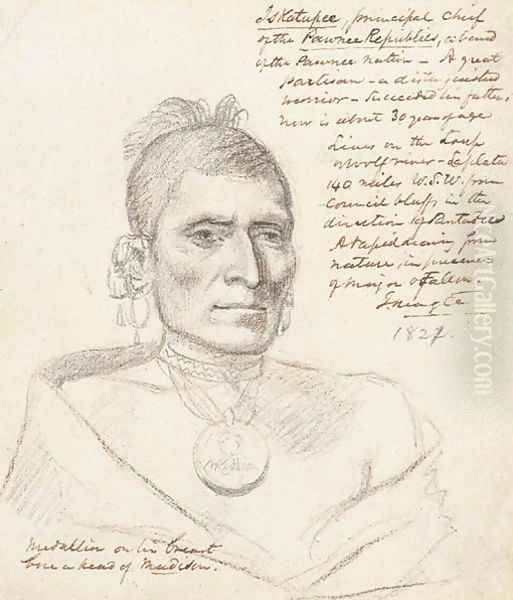 Iskatupee, principal chief
of the Pawnee Republics, a band
of the Pawnee nation – A great
partisan – a distinguished
warrior – Succeeded his father,
now is about 30 years of age
Lives on the Loup
or Wolf river – Laplata
140 miles W.S.W. from
Council bluffs in the
direction of
A rapid drawing from
nature, in presence
of Major O Fallon
1821.
Medallion on his breast
bore a head of Madison.
artGallery.com